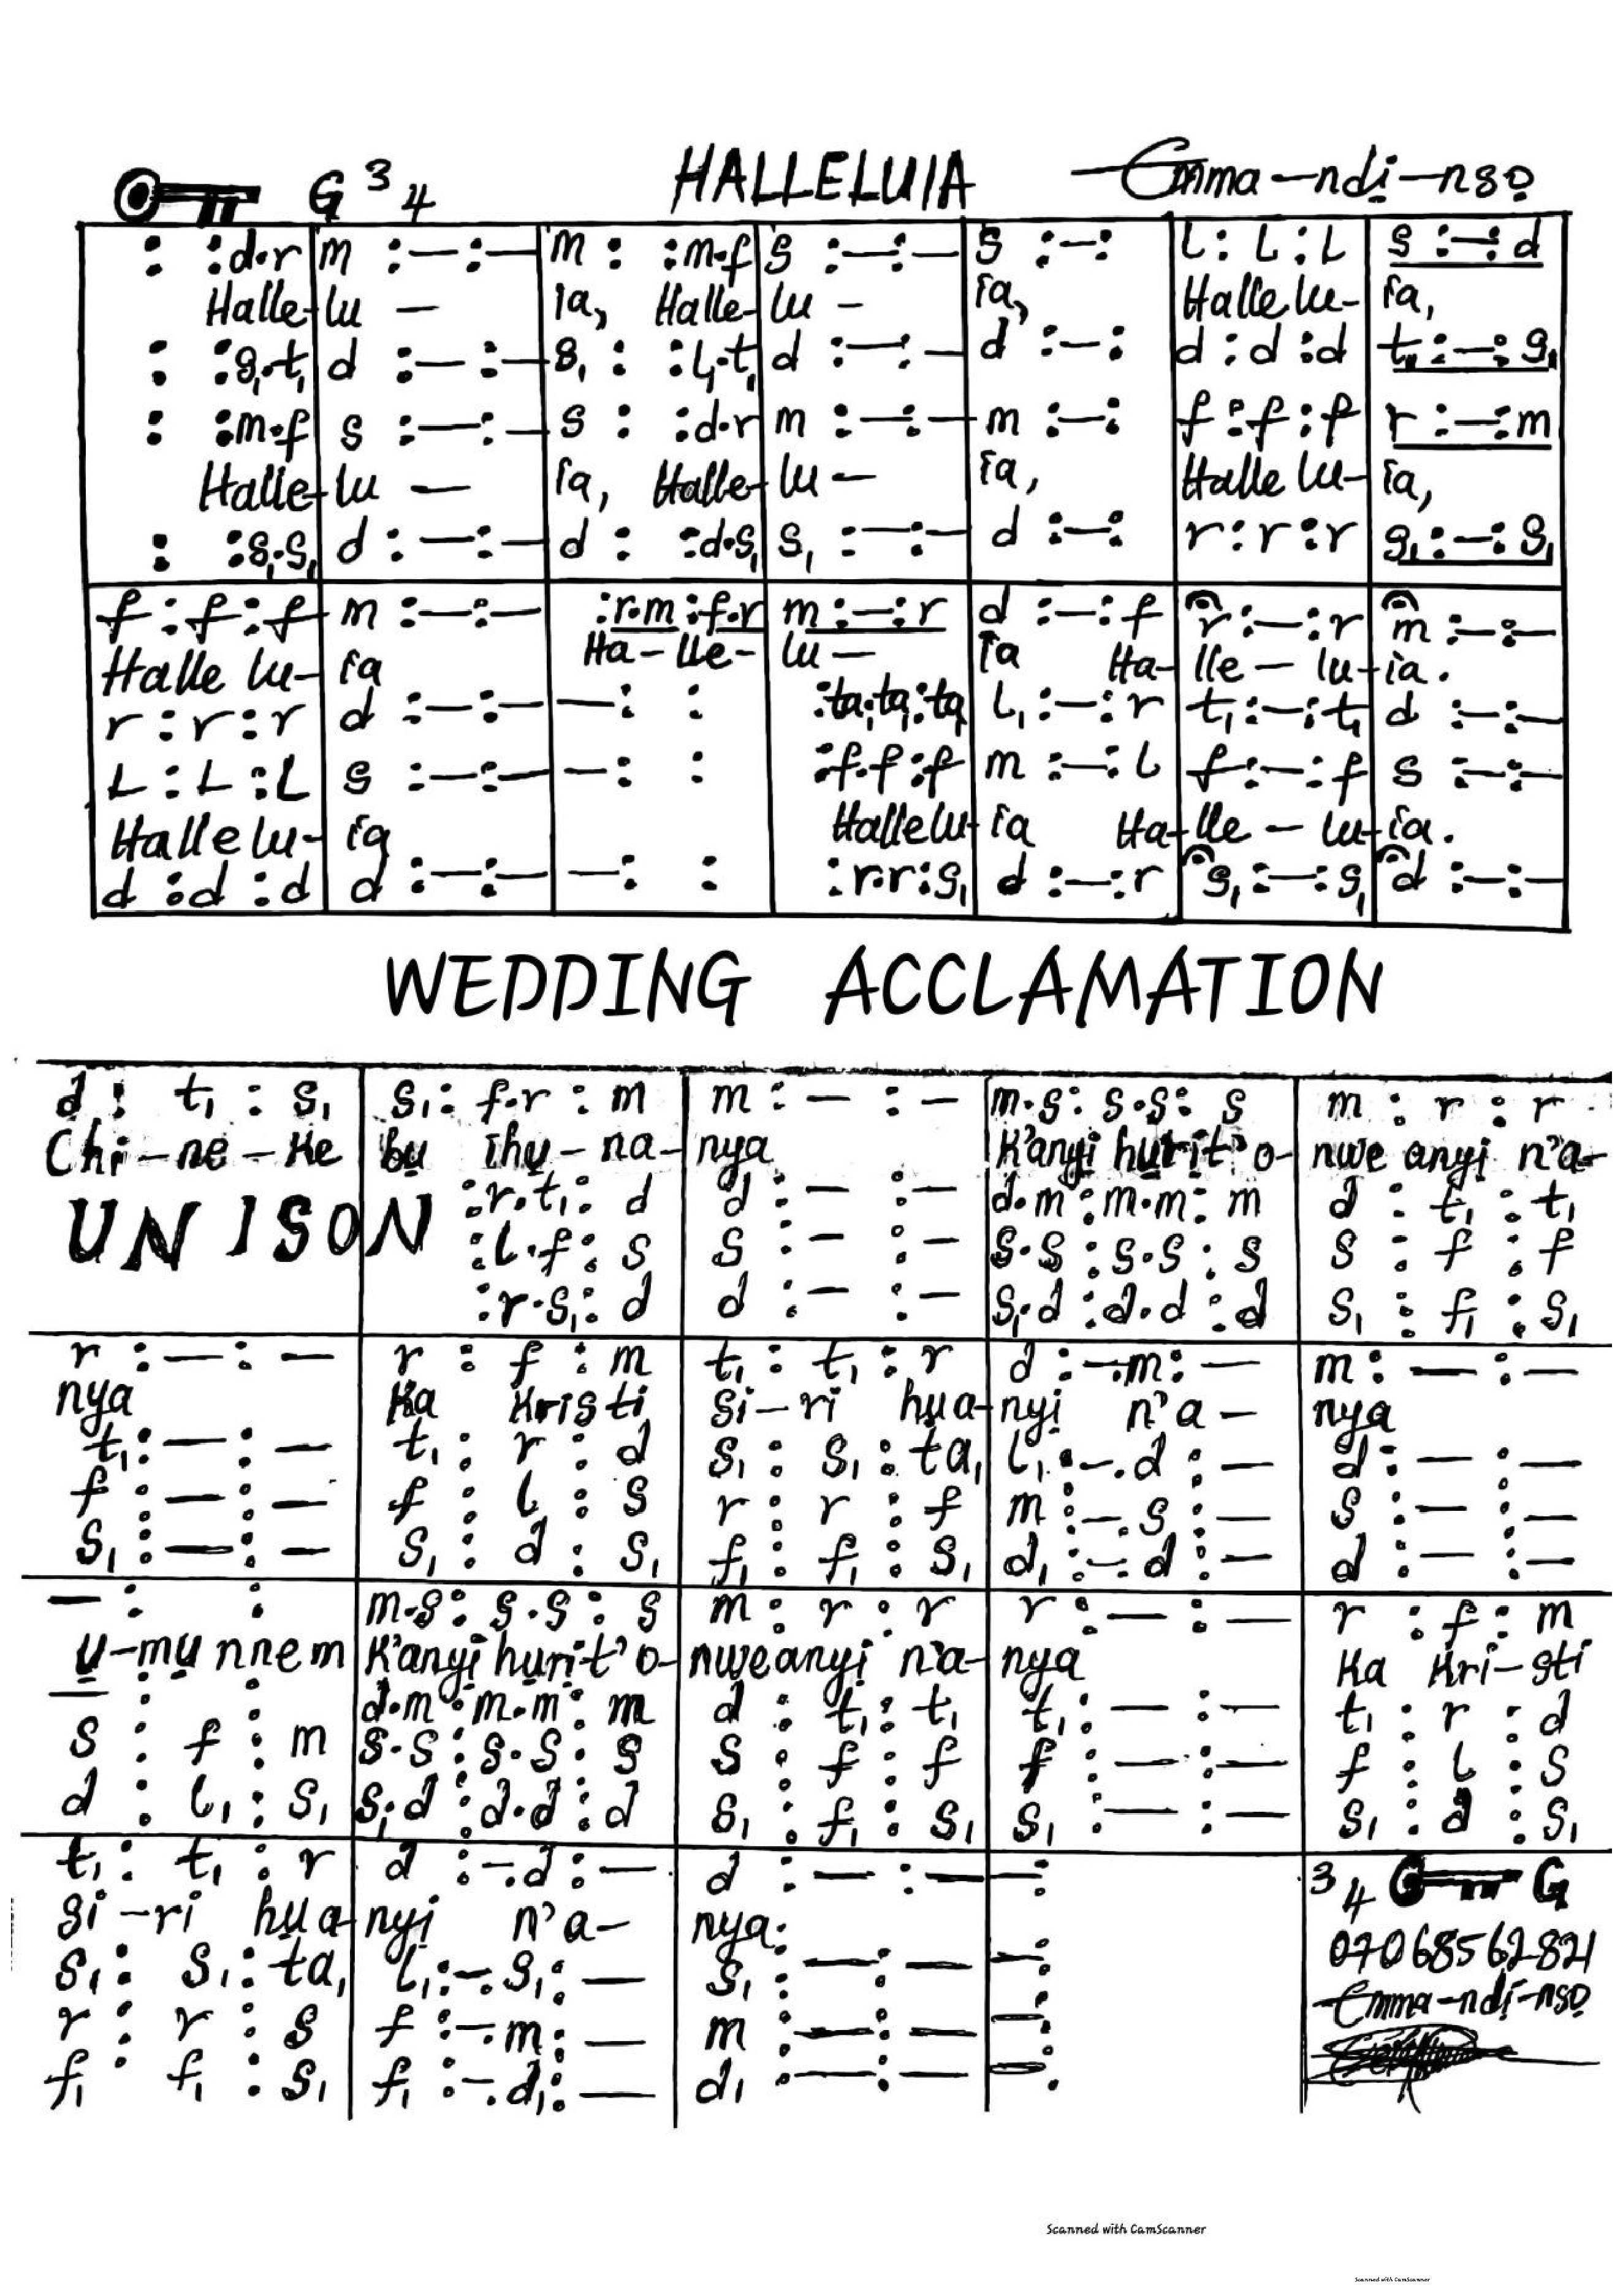 G 3 4 HALLELUIA Emma-ndi-nsọ
: :d.r | m :—:— | m : :m.f | s :—:— | s :—: | l : l : l | s :—: d
Halle-lu — ia, Halle-lu — ia, Halle lu- ia,
: :s₁.t₁ | d :—:— | s₁ : :l₁.t₁ | d :—:— | d :—: | d : d : d | t₁ :—: s₁
: :m.f | s :—:— | s : :d.r | m :—:— | m :—: | f : f : f | r :—: m
Halle-lu — ia, Halle-lu — ia, Halle lu- ia,
: :s₁.s₁ | d :—:— | d : :d.s₁ | s₁ :—:— | d :—: | r : r : r | s₁ :—: s₁
f : f : f | m :—:— | :r.m : f.r | m :—: r | d :—: f | r :—: r | m :—:—
Halle lu- ia Ha-lle- lu — ia Ha-lle — lu-ia.
r : r : r | d :—:— | —: : | :ta₁.ta₁:ta₁ | l₁ :—: r | t₁ :—: t₁ | d :—:—
l : l : l | s :—:— | —: : | :f.f : f | m :—: l | f :—: f | s :—:—
Halle lu- ia Hallelu-ia Ha-lle — lu-ia.
d : d : d | d :—:— | —: : | :r.r : s₁ | d :—: r | s₁ :—: s₁ | d :—:—
WEDDING ACCLAMATION
d : t₁ : s₁ | s₁ : f.r : m | m :—:— | m.s : s.s : s | m : r : r
Chi-ne-ke bụ Ihụ-na-nya K'anyị hụrịt' o-nwe anyị n'a-
UNISON :r.t₁ : d | d :—:— | d.m : m.m : m | d : t₁ : t₁
:l.f : s | s :—:— | s.s : s.s : s | s : f : f
:r.s₁ : d | d :—:— | s₁.d : d.d : d | s₁ : f₁ : s₁
r :—:— | r : f : m | t₁ : t₁ : r | d :—.m :— | m :—:—
nya Ka Kristi si-ri hụa-nyị n'a- nya
t₁ :—:— | t₁ : r : d | s₁ : s₁ : ta₁ | l₁ :—.d :— | d :—:—
f :—:— | f : l : s | r : r : f | m :—.s :— | s :—:—
s₁ :—:— | s₁ : d : s₁ | f₁ : f₁ : s₁ | d₁ :—.d :— | d :—:—
— : : | m.s : s.s : s | m : r : r | r :—:— | r : f : m
ụ-mụ nnem K'anyị hụrịt' o-nwe anyị n'a-nya Ka Kri-sti
— : : | d.m : m.m : m | d : t₁ : t₁ | t₁ :—:— | t₁ : r : d
s : f : m | s.s : s.s : s | s : f : f | f :—:— | f : l : s
d : l₁ : s₁ | s₁.d : d.d : d | s₁ : f₁ : s₁ | s₁ :—:— | s₁ : d : s₁
t₁ : t₁ : r | d :—.d :— | d :—:— | —: | 3 4 G
si-ri hụa-nyị n'a- nya. 07068562821
s₁ : s₁ : ta₁ | l₁ :—.s₁ :— | s₁ :—:— | —: | Emma-ndi-nsọ
r : r : s | f :—.m :— | m :—:— | —:
f₁ : f₁ : s₁ | f₁ :—.d₁ :— | d₁ :—:— | —:
Scanned with CamScanner
Scanned with CamScanner